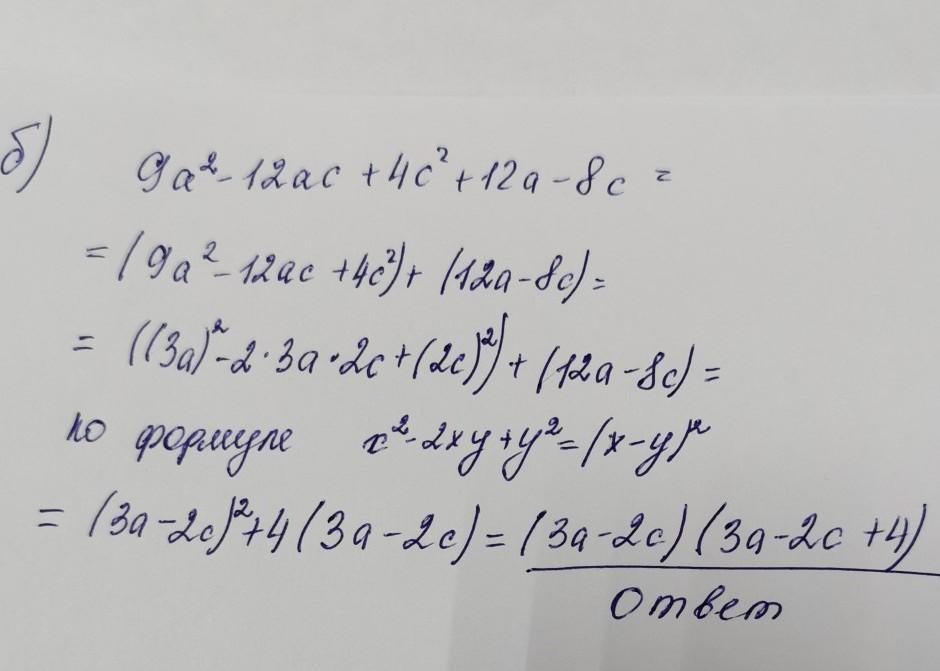 б) 9a² - 12ac + 4c² + 12a - 8c =
= (9a² - 12ac + 4c²) + (12a - 8c) =
= ((3a)² - 2·3a·2c + (2c)²) + (12a - 8c) =
по формуле x² - 2xy + y² = (x - y)²
= (3a - 2c)² + 4(3a - 2c) = (3a - 2c)(3a - 2c + 4)
Ответ